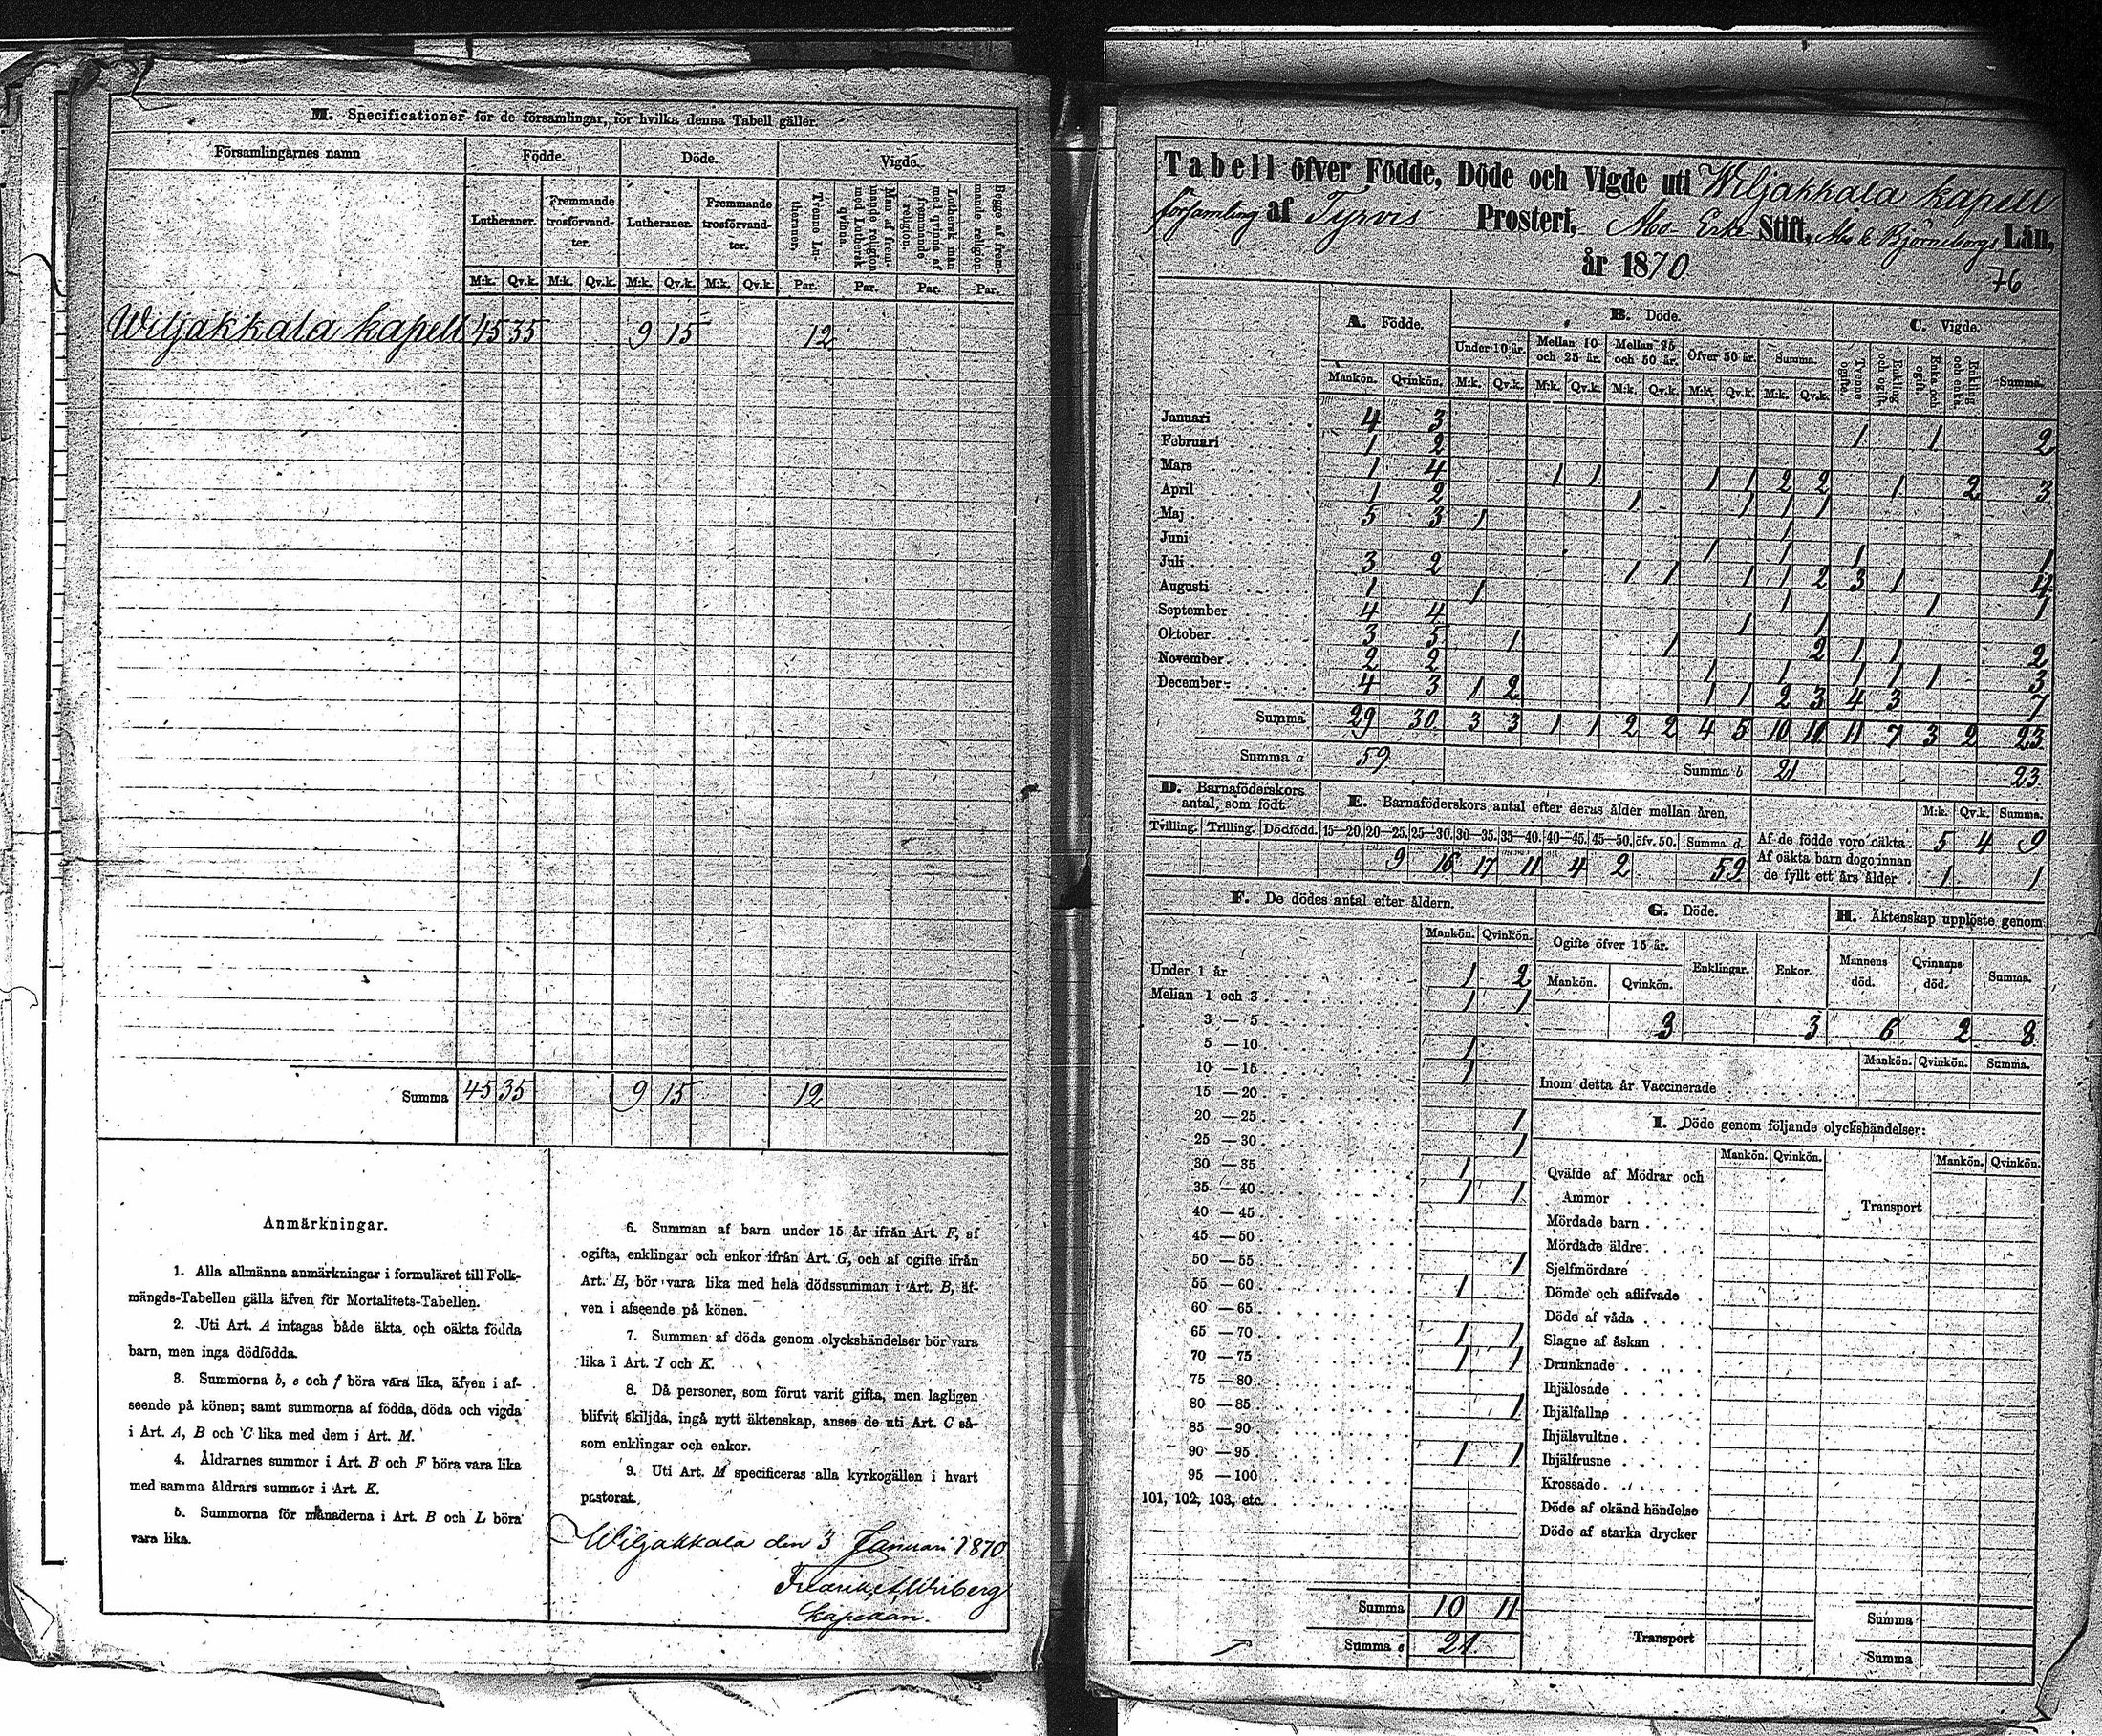 M. Specificationer för de församlingar, för hvilka denna Tabell gäller.
Församlingarnes namn Födde. Döde. Vigde.
Lutheraner. Fremmande trosförvand-ter. Lutheraner. Fremmande trosförvand-ter. Tvenne Lu-theraner. Man af frem-mande religion med Luthersk qvinna. Luthersk man med qvinna af fremmande religion. Begge af frem-mande religion.
M:k. Qv.k. M:k. Qv.k. M:k. Qv.k. M:k. Qv.k. Par. Par. Par. Par.
Wiljakkala kapell 45 35 9 15 12
Summa 45 35 9 15 12
Anmärkningar.
1. Alla allmänna anmärkningar i formuläret till Folk-
mängds-Tabellen gälla äfven för Mortalitets-Tabellen.
2. Uti Art. A intagas både äkta och oäkta födda
barn, men inga dödfödda.
3. Summorna b, e och f böra vara lika, äfven i af-
seende på könen; samt summorna af födda, döda och vigda
i Art. A, B och C lika med dem i Art. M.
4. Åldrarnes summor i Art. B och F böra vara lika
med samma åldrars summor i Art. K.
5. Summorna för månaderna i Art. B och L böra
vara lika.
6. Summan af barn under 15 år ifrån Art. F, af
ogifta, enklingar och enkor ifrån Art. G, och af ogifte ifrån
Art. H, bör vara lika med hela dödssumman i Art. B, äf-
ven i afseende på könen.
7. Summan af döda genom olyckshändelser bör vara
lika i Art. I och K.
8. Då personer, som förut varit gifta, men lagligen
blifvit skiljda, ingå nytt äktenskap, anses de uti Art. C så-
som enklingar och enkor.
9. Uti Art. M specificeras alla kyrkogällen i hvart
pastorat.
Wiljakkala den 3 Januari 1870
Fredrik
kapellan.
Tabell öfver Födde, Döde och Vigde uti Wiljakkala kapell
församling af Tyrvis Prosteri, Åbo Erke Stift, Åbo & Björneborgs Län,
år 1870
76.
A. Födde. B. Döde. C. Vigde.
Under 10 år. Mellan 10 och 25 år. Mellan 25 och 50 år. Öfver 50 år. Summa. Tvenne ogifte. Enkling och ogift. Enka och ogift. Enkling och enka. Summa.
Mankön. Qvinkön. M:k. Qv.k. M:k. Qv.k. M:k. Qv.k. M:k. Qv.k. M:k. Qv.k.
Januari 4 3 1 1 2
Februari 1 2
Mars 1 4 1 1 1 1 2 2 1 2 3
April 1 2 1 1 1 1
Maj 5 3 1 1
Juni 1 1 1 1
Juli 3 2 1 1 1 1 2 3 1 4
Augusti 1 1 1 1 1
September 4 4 1 1
Oktober 3 5 1 1 2 1 1 2
November 2 2 1 1 1 1 1 3
December 4 3 1 2 1 1 2 3 4 3 7
Summa 29 30 3 3 1 1 2 2 4 5 10 11 11 7 3 2 23
Summa a 59 Summa b 21 23
D. Barnaföderskors antal, som födt: E. Barnaföderskors antal efter deras ålder mellan åren.
M:k. Qv.k. Summa.
Tvilling. Trilling. Dödfödd. 15—20. 20—25. 25—30. 30—35. 35—40. 40—45. 45—50. öfv. 50. Summa d.
9 16 17 11 4 2 59
Af de födde voro oäkta 5 4 9
Af oäkta barn dogo innan
de fyllt ett års ålder 1 1
F. De dödes antal efter åldern.
Mankön. Qvinkön.
Under 1 år 1 2
Mellan 1 och 3 1 1
3 — 5
5 — 10 1
10 — 15 1
15 — 20
20 — 25 1
25 — 30 1
30 — 35 1
35 — 40 1 1
40 — 45
45 — 50
50 — 55 1
55 — 60 1
60 — 65
65 — 70 1 1
70 — 75 1 1
75 — 80
80 — 85 1
85 — 90
90 — 95 1 1
95 — 100
101, 102, 103, etc.
Summa 10 11
Summa e 21
G. Döde. H. Äktenskap upplöste genom
Ogifte öfver 15 år. Enklingar. Enkor. Mannens död. Qvinnans död. Summa.
Mankön. Qvinkön.
3 3 6 2 8
Mankön. Qvinkön. Summa.
Inom detta år Vaccinerade
I. Döde genom följande olyckshändelser:
Mankön. Qvinkön. Mankön. Qvinkön.
Qväfde af Mödrar och
Ammor Transport
Mördade barn
Mördade äldre
Sjelfmördare
Dömde och aflifvade
Döde af våda
Slagne af åskan
Drunknade
Ihjälosade
Ihjälfallne
Ihjälsvultne
Ihjälfrusne
Krossade
Döde af okänd händelse
Döde af starka drycker
Summa
Transport Summa